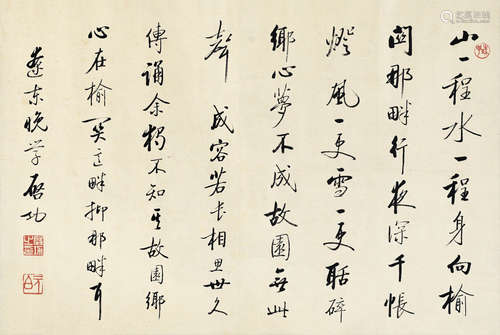 山一程水一程身向榆
關那畔行夜深千帳
燈風一更雪一更聒碎
鄉心夢不成故園無此
聲 成容若長相思世久
傳誦余獨不知其故園鄉
心在榆關這畔抑那畔耳
遼東晚学啓功